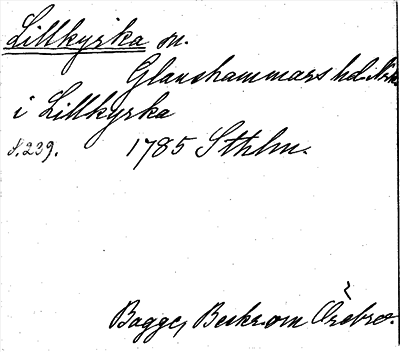 Lillkyrka sn.
Glanshammars hd. Nrk
i Lillkyrka
S. 239. 1785 Sthlm.
Bagge, Beskr. om Örebro.